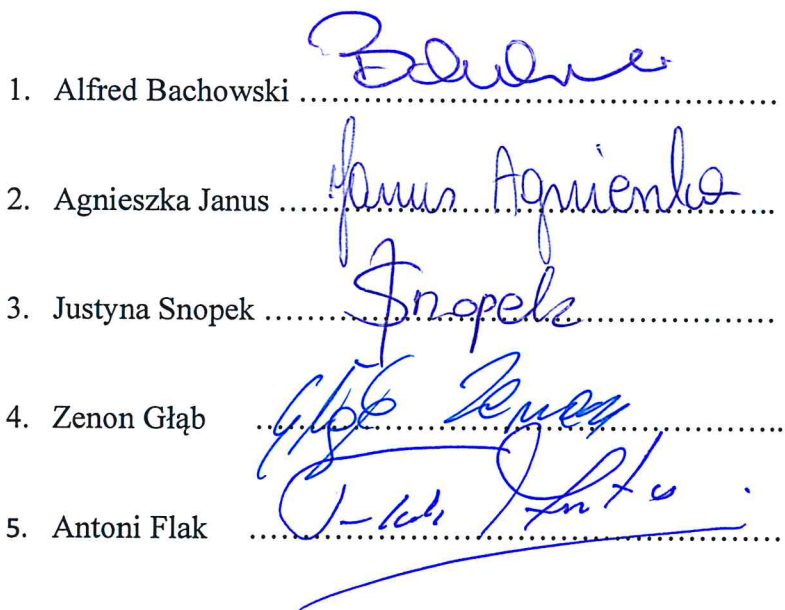 1. Alfred Bachowski ........................................ 
2. Agnieszka Janus ....Janus Agnieszka....
3. Justyna Snopek ....Snopek....
4. Zenon Głąb ....Głąb Zenon....
5. Antoni Flak ........................................